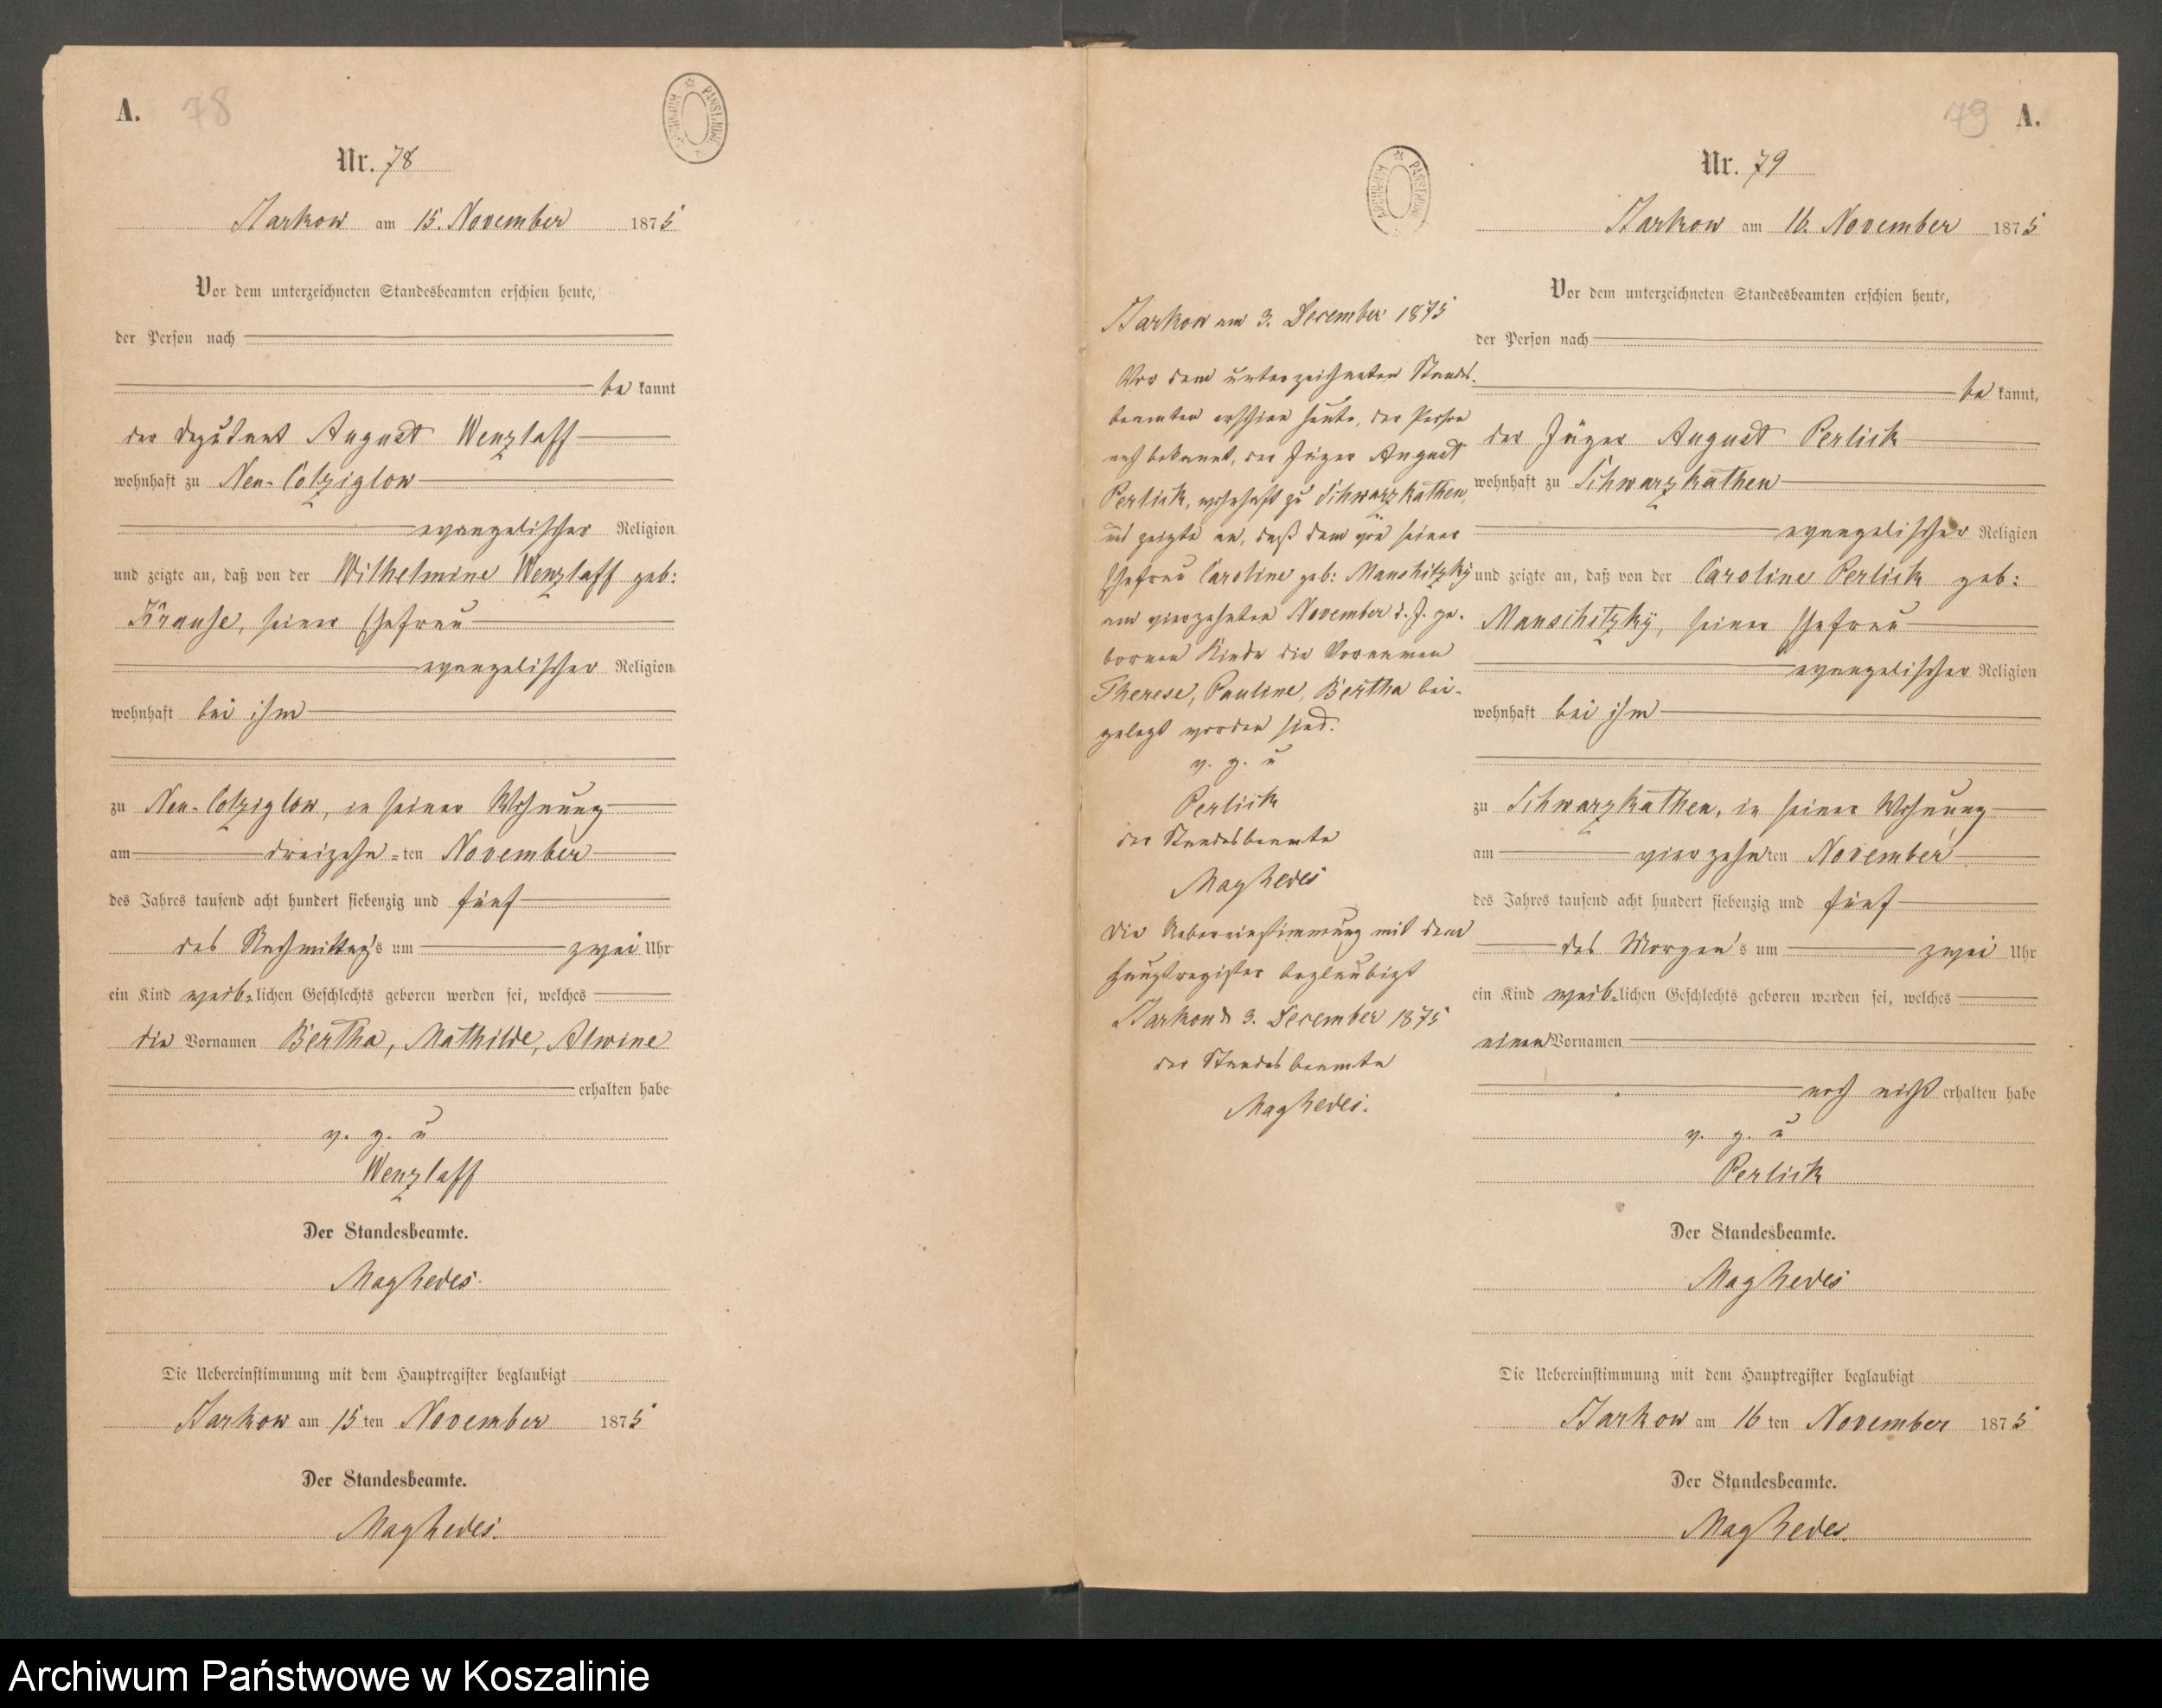 A. 78
ARCHIWUM PAŃSTWOWE
Nr. 78
Starkow am 15. November 1875
Vor dem unterzeichneten Standesbeamten erschien heute,
der Person nach
be kannt
der Deputant August Wenzlaff
wohnhaft zu Neu-Colziglow
evangelischer Religion
und zeigte an, daß von der Wilhelmine Wenzlaff geb:
Krause, seiner Ehefrau
evangelischer Religion
wohnhaft bei ihm
zu Neu-Colziglow, in seiner Wohnung
am dreizehn-ten November
des Jahres tausend acht hundert siebenzig und fünf
des Nachmittag's um zwei Uhr
ein Kind weib-lichen Geschlechts geboren worden sei, welches
die Vornamen Bertha, Mathilde, Alwine
erhalten habe
v. g. u
Wenzlaff
Der Standesbeamte.
Die Uebereinstimmung mit dem Hauptregister beglaubigt
Starkow am 15 ten November 1875
Der Standesbeamte.
ARCHIWUM PAŃSTWOWE
Starkow am 3. December 1875
Vor dem unterzeichneten Standes-
beamten erschien heute, der Person
nach bekannt, der Jäger August
Perlick, wohnhaft zu Schwarzkathen,
und zeigte an, daß dem von seiner
Ehefrau Caroline geb: Manschitzky
am vierzehnten November d. J. ge-
bornen Kinde die Vornamen
Therese, Pauline, Bertha bei-
gelegt worden sind.
v. g. u
Perlick
der Standesbeamte
Die Uebereinstimmung mit dem
Hauptregister beglaubigt
Starkow d 3. December 1875
der Standesbeamte
79 A.
Nr. 79
Starkow am 16. November 1875
Vor dem unterzeichneten Standesbeamten erschien heute,
der Person nach
be kannt,
der Jäger August Perlick
wohnhaft zu Schwarzkathen
evangelischer Religion
und zeigte an, daß von der Caroline Perlick geb:
Manschitzky, seiner Ehefrau
evangelischer Religion
wohnhaft bei ihm
zu Schwarzkathen, in seiner Wohnung
am vierzehnten November
des Jahres tausend acht hundert siebenzig und fünf
des Morgen's um zwei Uhr
ein Kind weib-lichen Geschlechts geboren worden sei, welches
einen Vornamen
noch nicht erhalten habe
v. g. u
Perlick
Der Standesbeamte.
Die Uebereinstimmung mit dem Hauptregister beglaubigt
Starkow am 16 ten November 1875
Der Standesbeamte.
Archiwum Państwowe w Koszalinie